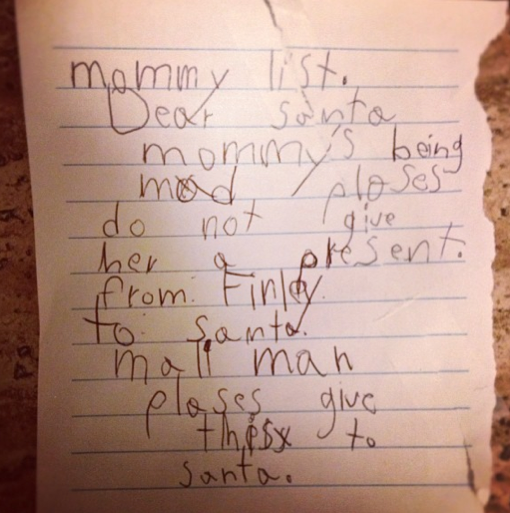 mommy list.
Dear santa
mommy's being
mad ploses
do not give
her a present.
from. Finley.
to santa.
mall man
ploses give
thesx to
santa.